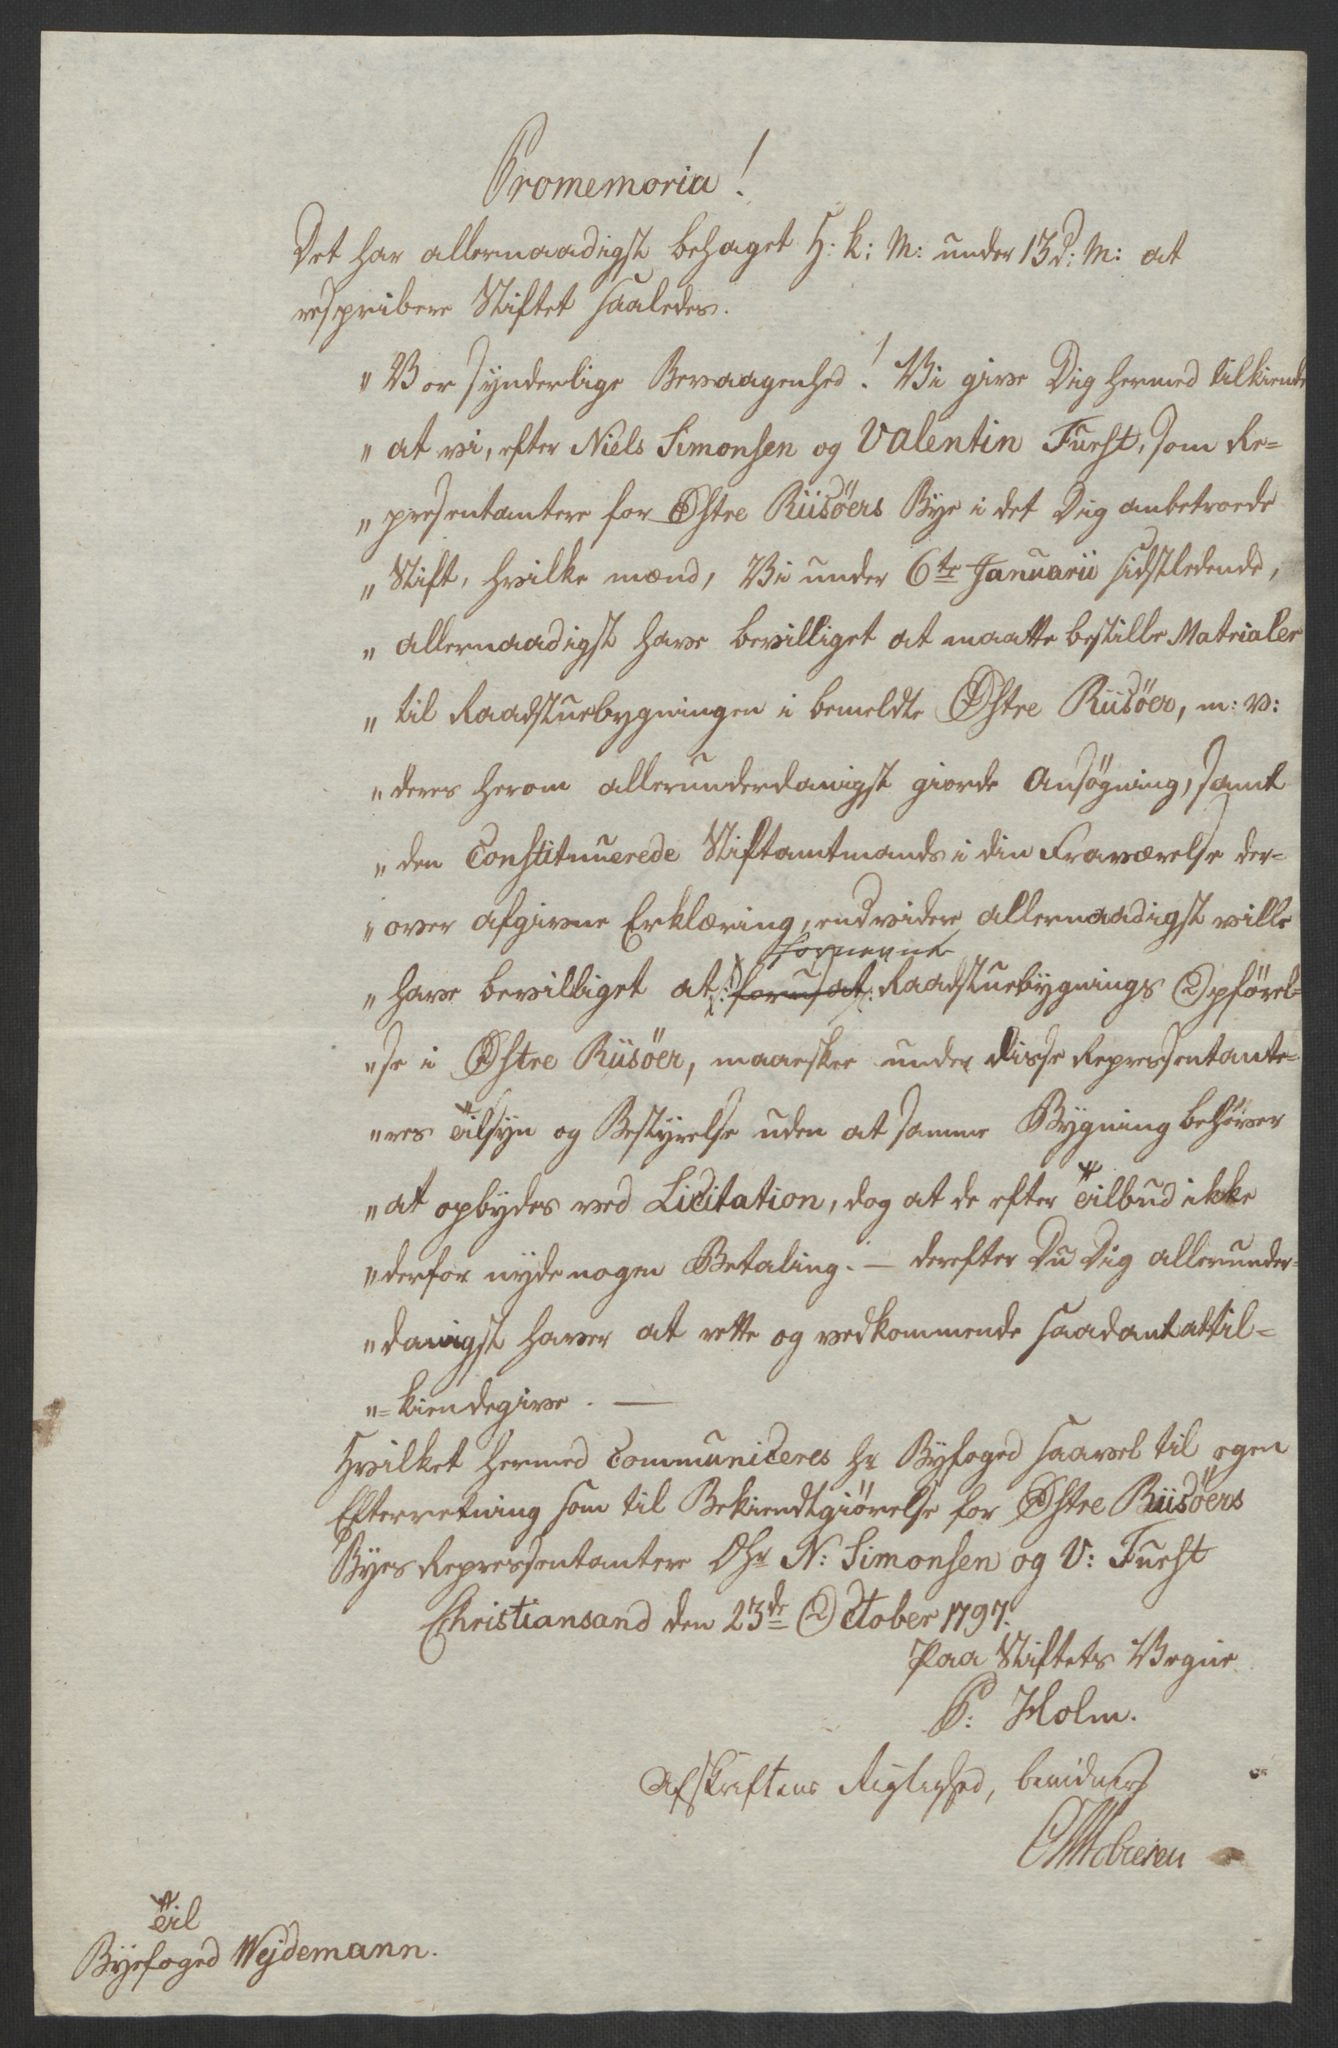 Promemoria!
Det har allernaadigst behaget H: k: M: under 13 d: M: at
rescribere Stiftet saaledes.
" Vor synderlige Bevaagenhed! Vi give Dig hermed tilkiende
" at vi, efter Niels Simonsen og Valentin Fürst, som Re=
" presentantere for Østre Riisöers Bye i det Dig anbetroede
" Stift, hvilke mænd, Vi under 6te Januarii sidstledende,
" allernaadigst have bevilliget at maatte bestille Materialer
" til Raadstuebygningen i bemeldte Østre Riisöer, m: v:
" deres herom allerunderdanigst giorde Ansögning, samt
" den Constituerede Stiftamtmands i din Fraværelse der=
" over afgivne Erklæring, endvidere allernaadigst ville
fornevnte
" have bevilliget at /: forusat :/ Raadstuebygnings Opförel=
" se i Østre Riisöer, maaeskee under disse Repressentante=
" res Tilsyn og Bestyrelse uden at samme Bygning behöver
" at opbydes ved Licitation, dog at de efter Tilbud ikke
" derfor nyde nogen Betaling. — derefter Du Dig allerunder=
" danigst haver at rette og vedkommende saadant at til=
"= kiendegive. —
Hvilket hermed Communiceres Hr Byfoged saavel til egen
Efterretning som til Bekiendtgiörelse for Østre Riisöers
Byes Repressentantere Hr N: Simonsen og V: Fürst
Christiansand den 23de October 1797.
Paa Stiftets Vegne
P: Holm.
Afskriftens Rigtighed, bevidner
Til
Byefoged Wejdemann.